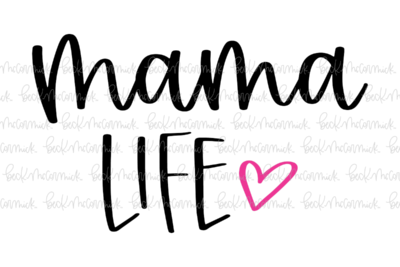 mama
LIFE